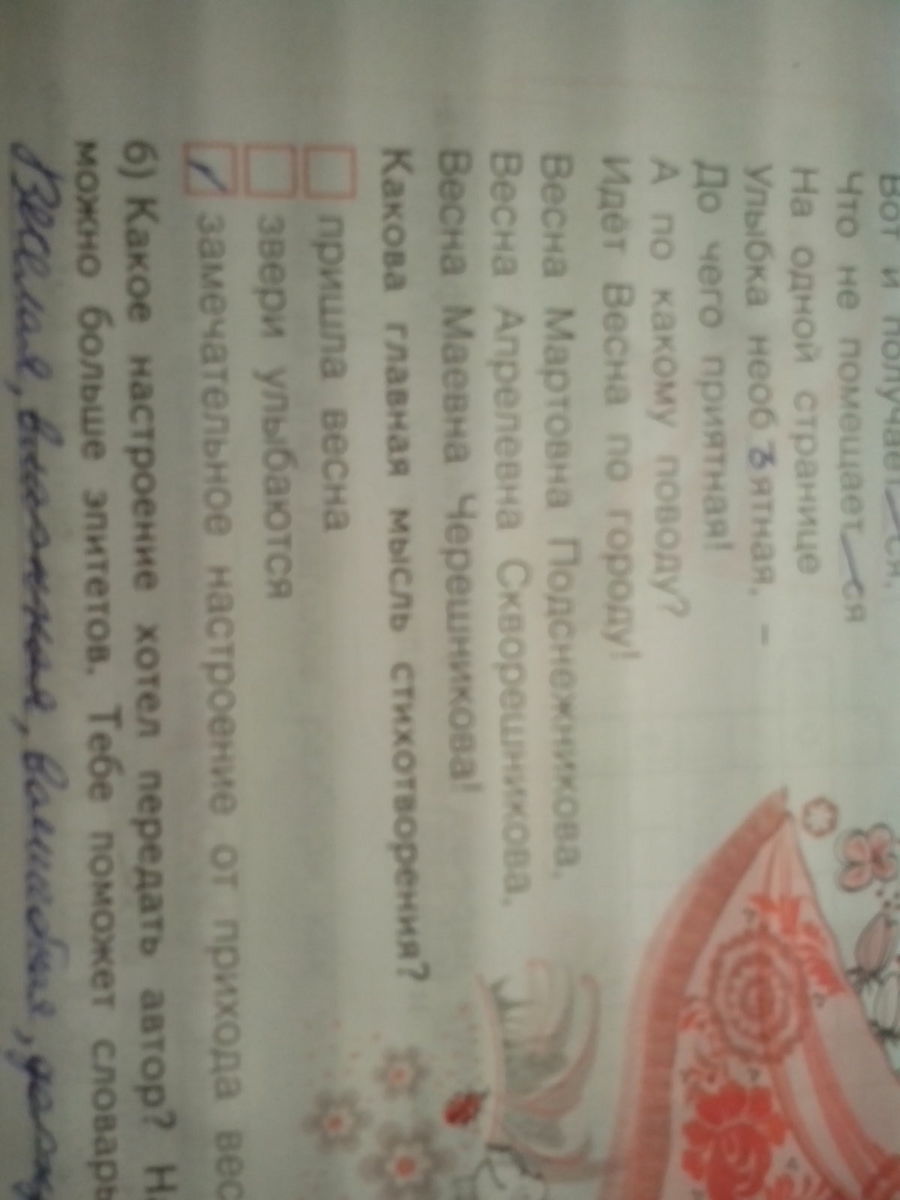 Вот и получает ся,
Что не помещает ся
На одной странице
Улыбка необъятная, –
До чего приятная!
А по какому поводу?
Идёт Весна по городу!
Весна Мартовна Подснежникова,
Весна Апрелевна Скворешникова,
Весна Маевна Черешникова!
Какова главная мысль стихотворения?
пришла весна
звери улыбаются
замечательное настроение от прихода вес
б) Какое настроение хотел передать автор? На
можно больше эпитетов. Тебе поможет словарь
Веселая,